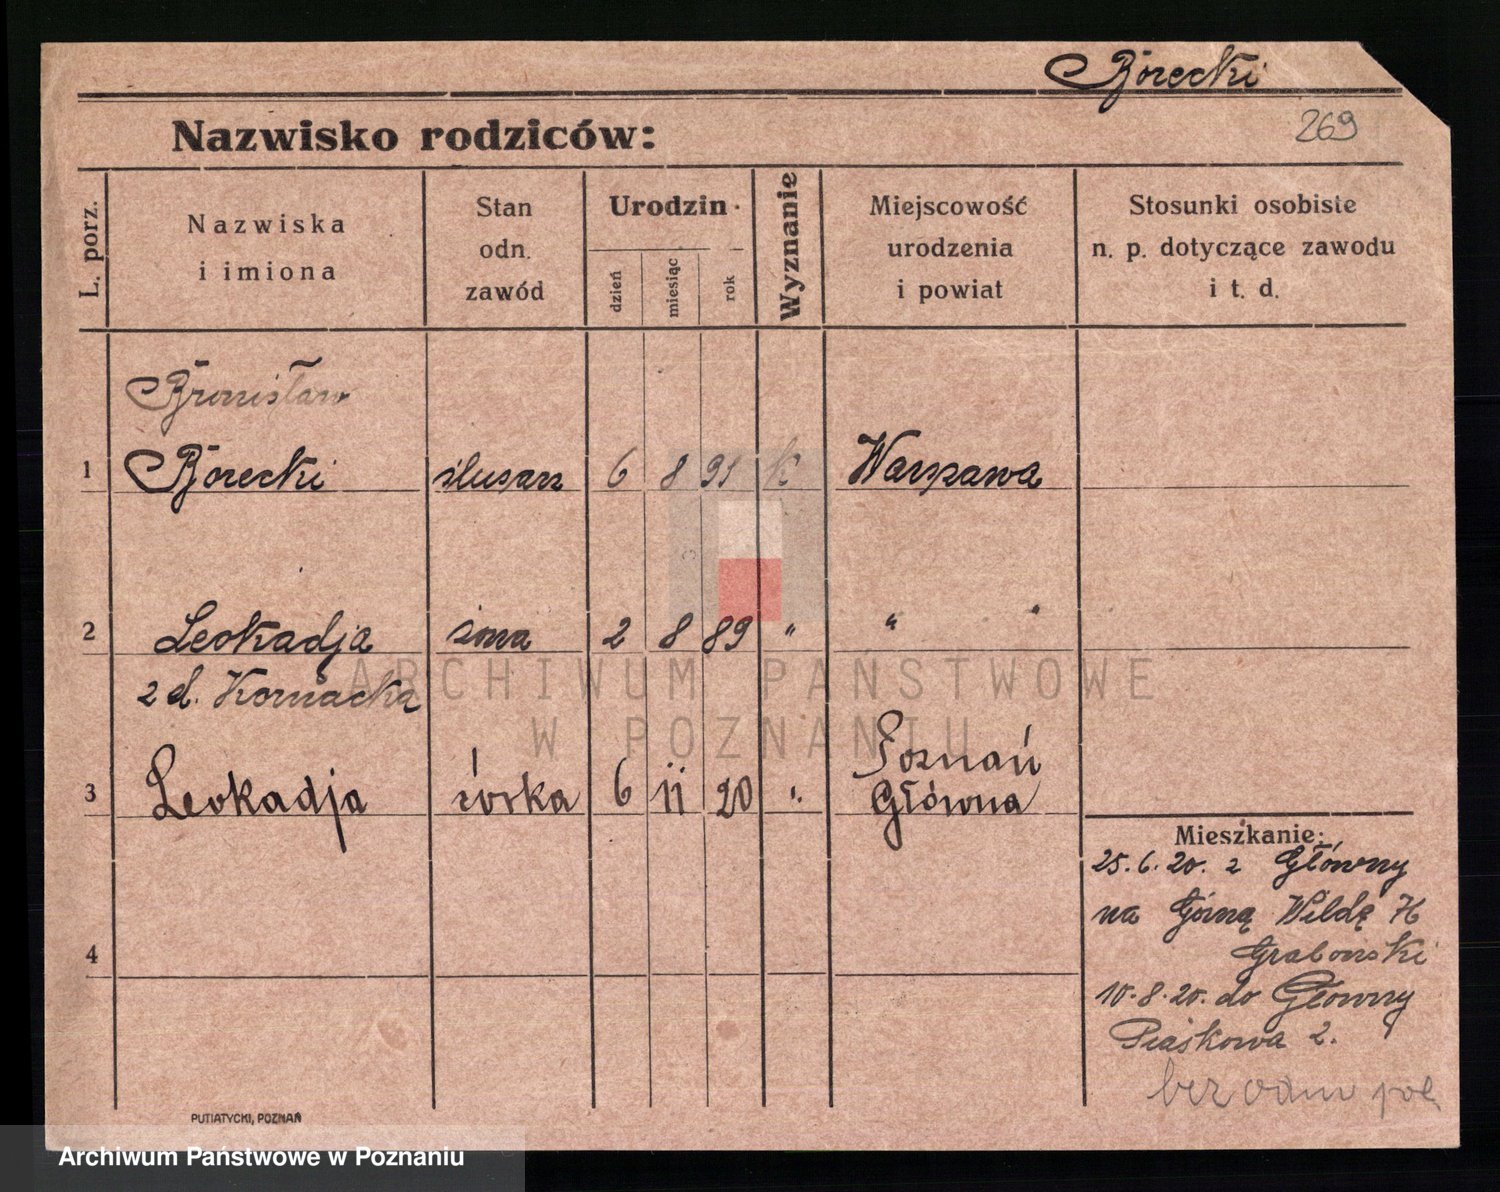 Borecki
269
Nazwisko rodziców:
L. porz.
Nazwiska
i imiona
Stan
odn.
zawód
Urodzin
dzień
miesiąc
rok
Wyznanie
Miejscowość
urodzenia
i powiat
Stosunki osobiste
n. p. dotyczące zawodu
i t. d.
Bronisław
1 Borecki ślusarz 6 8 91 k Warszawa
2 Leokadja żona 2 8 89 " " "
z d. Kornacka
Poznań
3 Leokadja córka 6 11 20 " Główna
Mieszkanie:
25. 6. 20. z Główny
na Górną Wildę 76
Grabonski
4
10. 8. 20. do Główny
Piaskowa 2.
bez odm pol
PUTIATYCKI, POZNAŃ
ARCHIWUM PAŃSTWOWE
W POZNANIU
Archiwum Państwowe w Poznaniu